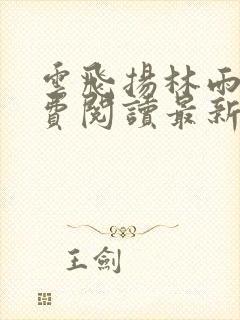 雲飛揚林雨
費閱讀最新
王劍